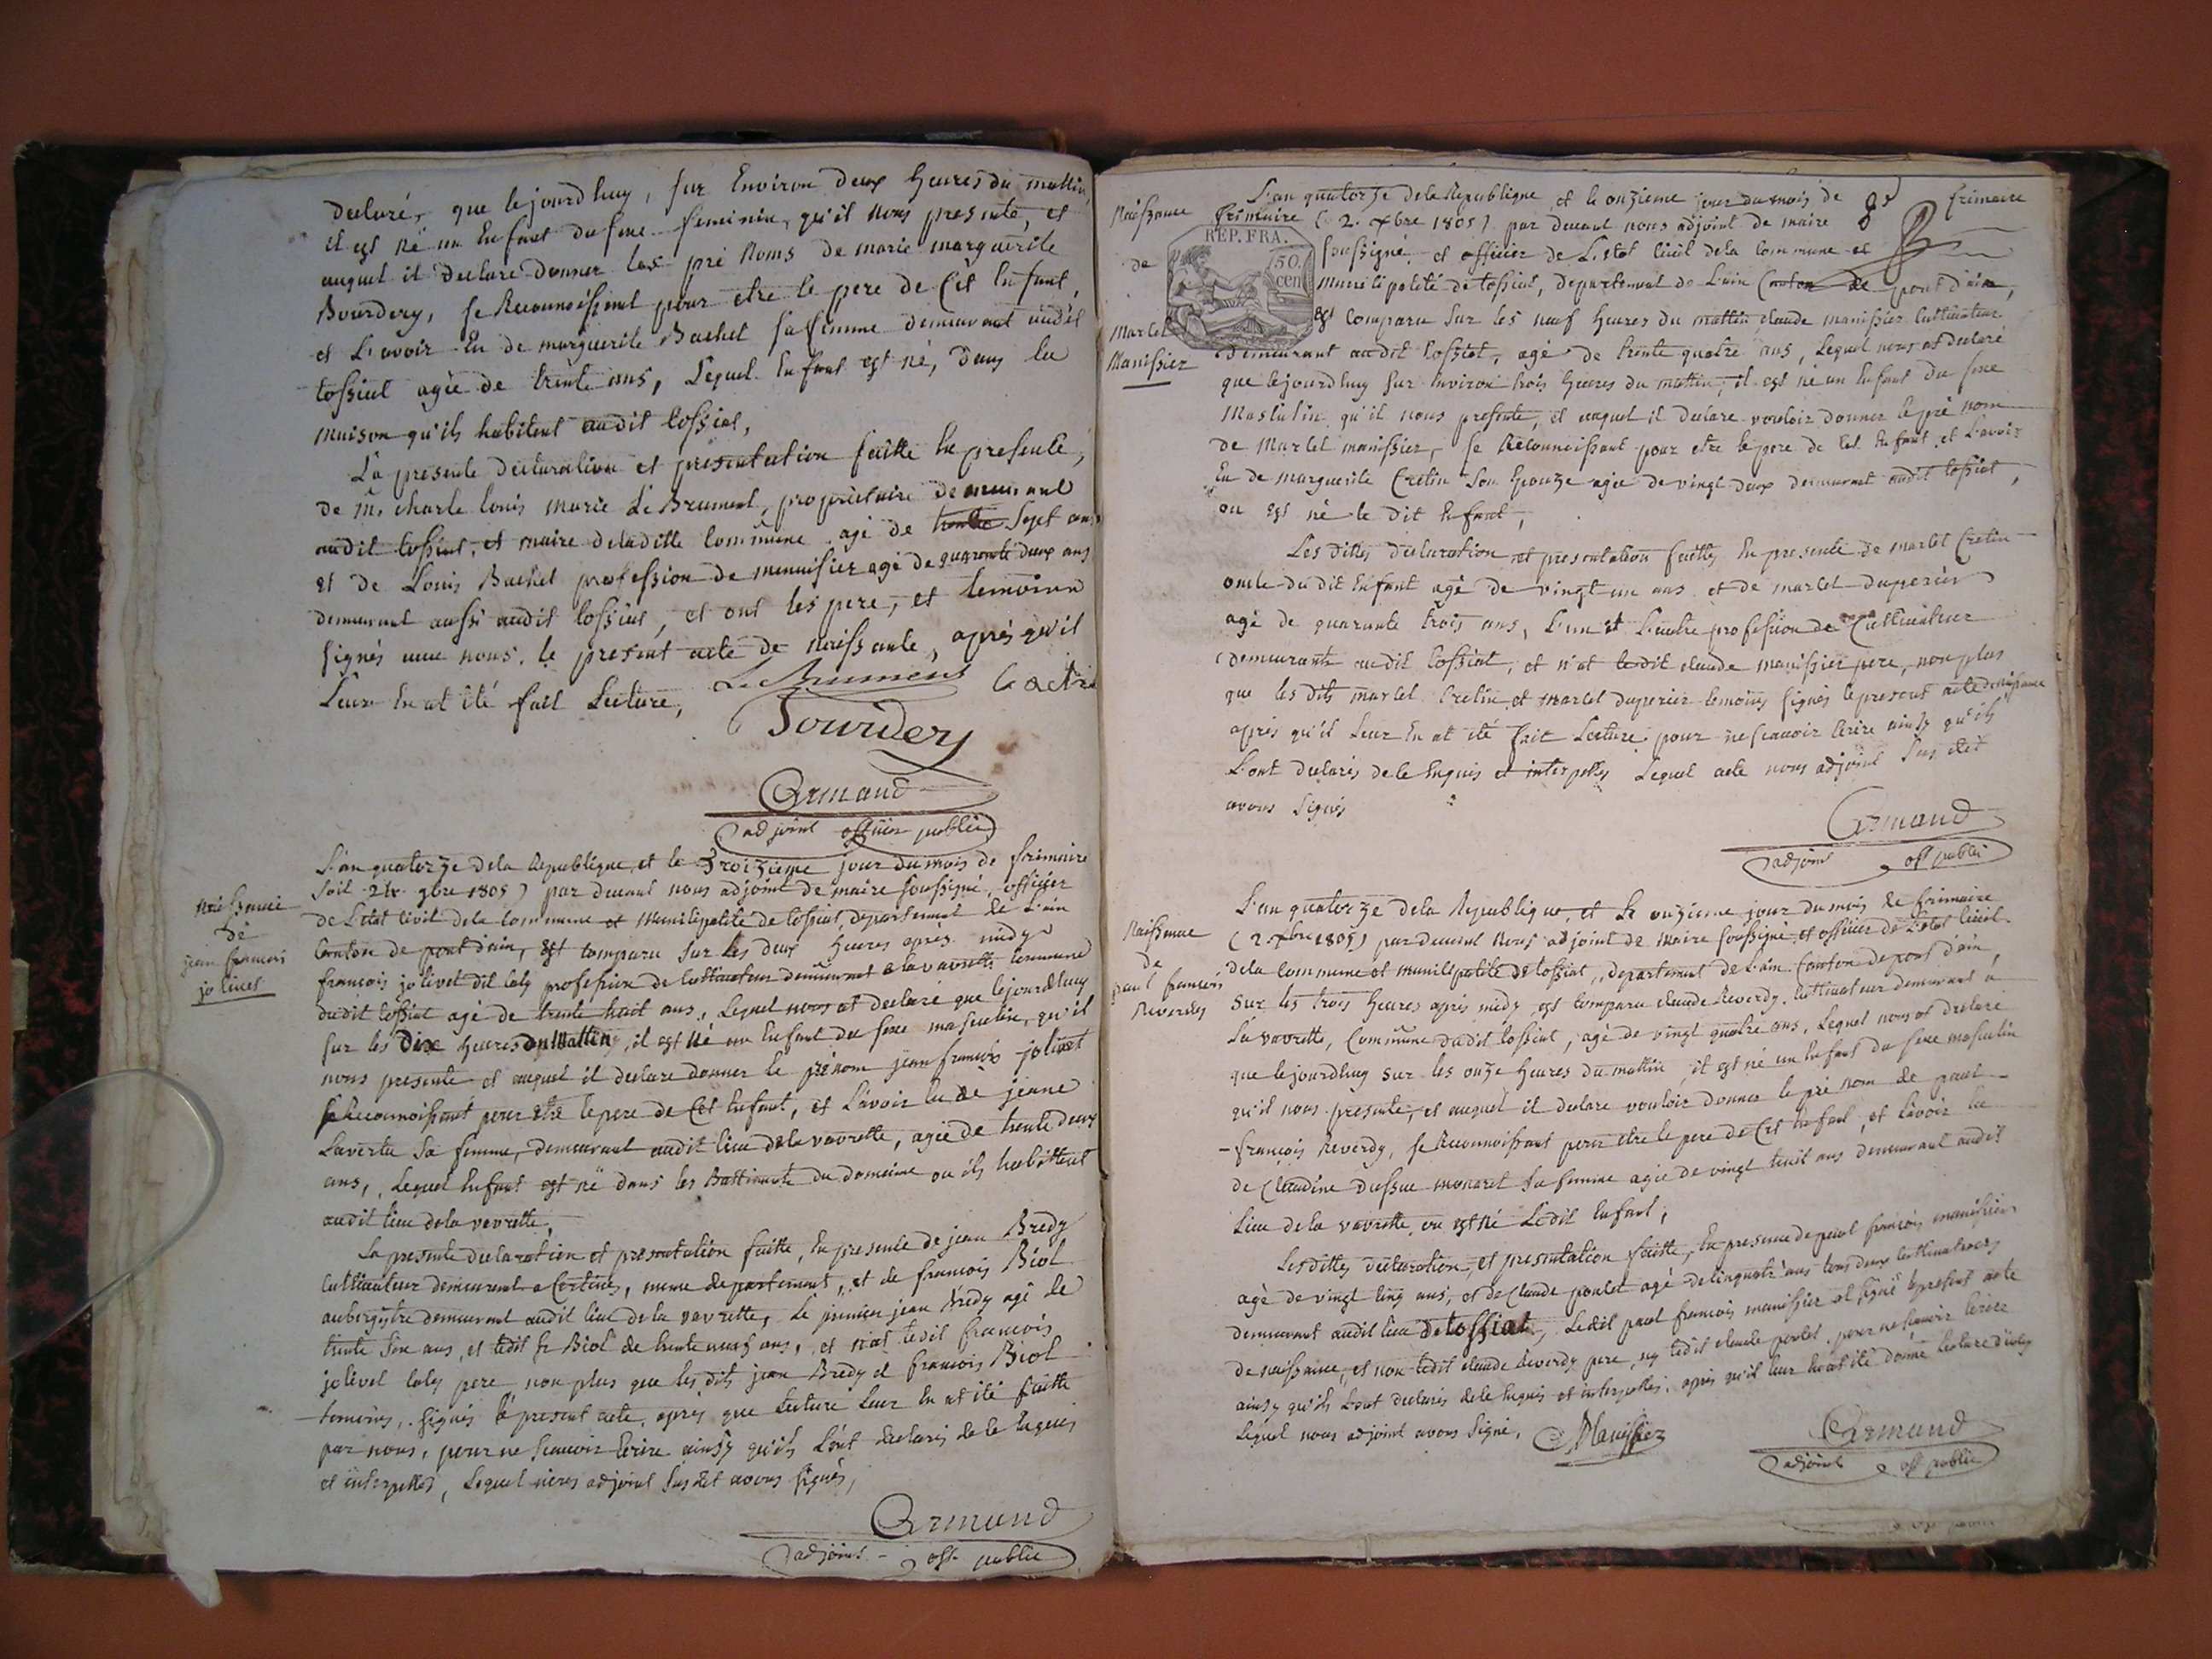 declaré, que lejourdhuy, sur Environ deux heures du mattin,
il est né un Enfant du sexe feminin, qu'il nous presente, et
auquel il declare donner les pré Noms de marie marguerite
Bourdery, se Reconnoissant pour etre le pere de Cet Enfant,
et L'avoir Eu de marguerite Bachet sa femme demeurant audit
tossiat agée de trente ans, Lequel Enfant est né, dans la
maison qu'ils habitent audit tossiat,
La presente declaration et presentation faitte En presence,
de Mr. charle louis marie Le Brument, proprietaire demeurant
audit tossiat, et maire deladitte Commune agé de trente Sept ans
et de Louis Bachet profession de menuisier agé de quarante deux ans
demeurant aussi audit tossiat, et ont les pere, et temoins
signés avec nous, le present acte de naissance, après qu'il
Leur En at été fait Lecture, Le Brument
Bourdery
Armand
adjoint officier public
Naissance
de
jean francois
jolivet
L'an quatorze dela Republique, et le Troizieme jour du mois de frimaire
soit 24. 9bre 1805) par devant nous adjoint de maire soussigné, officier
de L'etat Civil dela Commune et Municipalité de tossiat, departement de L'ain
Canton de pont d'ain, est comparu sur les deux heures après midy
françois jolivet dit laly profession de Cultivateur demeurant a la vavrette Commune
dudit tossiat agé de trente huit ans, Lequel nous at declaré que lejourdhuy
sur les Dix heures du Mattin, il est Né un Enfant du sexe masculin, qu'il
nous presente et auquel il declare donner le prénom jean françois jolivet
se Reconnoissant pour etre le pere de Cet Enfant, et L'avoir Eu de jeanne
Laverta sa femme, demeurant audit lieu dela vavrette, agée de trente deux
ans, Lequel Enfant est né dans les Battiments du domaine ou ils habittent
audit lieu dela vavrette,
La presente declaration et presentation faitte, En presence de jean Bredy
Cultivateur demeurant a Certines, meme departement, et de françois Biol
aubergistre demeurant audit lieu de la vavrette, Le premier jean Bredy agé de
trente six ans, et ledit fr Biol de trente neuf ans, et n'at ledit françois
jolivet laly pere, non plus que les dits jean Bredy et françois Biol
temoins, signés le present acte, apres que Lecture Leur En at été faitte
par nous, pour ne scavoir Ecrire ainsy qu'ils L'ont declarés de ce Enquis
et interpellés, Lequel nous adjoint susdit avons signés,
Armand
adjoint off. public
8e frimaire
Naissance
de
Marcel
Manissier
REP. FRA.
50 cent
L'an quatorze dela Republique et le onzieme jour du mois de
frimaire (2. Xbre 1805) par devant nous adjoint de maire
soussigné, et officier de L'etat Civil dela Commune et
municipalité de tossiat, departement de L'ain Canton de pont d'ain,
Est Comparu sur les neuf heures du mattin claude manissier Cultivateur
demeurant audit tossiat, agé de trente quatre ans, Lequel nous at declaré
que lejourdhuy sur Environ trois heures du mattin, il est né un Enfant du sexe
Masculin qu'il nous presente, et auquel il declare vouloir donner le pré nom
de Marcel manissier, se Reconnoissant pour etre le pere de Cet Enfant et L'avoir
Eu de marguerite Cretin son Epouze agée de vingt deux demeurant audit tossiat,
ou est né le dit Enfant,
Les dittes declaration et presentation faittes En presence de marcel Cretin
oncle dudit Enfant agé de vingt un ans et de marcel duperier
agé de quarante trois ans, L'un et L'autre profession de Cultivateur
demeurants audit tossiat, et n'at ledit claude manissier pere, non plus
que les dits marcel Cretin et marcel duperier temoins signés le present acte de naissance
apres qu'il Leur En at été fait Lecture pour ne scavoir Ecrire ainsy qu'ils
L'ont declarés de ce Enquis et interpellés Lequel acte nous adjoint susdit
avons signés
Armand
adjoint off public
Naissance
de
paul françois
Reverdy
L'an quatorze dela Republique, et le onzieme jour du mois de frimaire
(2. Xbre 1805) par devant Nous adjoint de Maire soussigné et officier de L'etat Civil
dela Commune et municipalité de tossiat, departement de L'ain Canton de pont d'ain,
sur les trois heures après midy, est Comparu claude Reverdy, Cultivateur demeurant a
La vavrette, Commune dudit tossiat, agé de vingt quatre ans, Lequel nous at declaré
que lejourdhuy sur les onze heures du mattin, il est né un Enfant du sexe masculin
qu'il nous presente, et auquel il declare vouloir donner le pré nom de paul
françois Reverdy, se Reconnoissant pour etre le pere de Cet Enfant, et L'avoir Eu
de Claudine dessue monaret sa femme agée de vingt huit ans demeurant audit
Lieu de la vavrette, ou est Né Ledit Enfant,
Lesdittes declaration, et presentation faitte, En presence de paul françois manissier
agé de vingt Cinq ans, et de Claude poulet agé de Cinquante ans tous deux Cultivateurs
demeurant audit lieu de tossiat, Ledit paul françois manissier at signé le present acte
de naissance, et non ledit claude Reverdy pere, ny ledit claude poulet, pour ne scavoir Ecrire
ainsy qu'ils L'ont declarés de ce Enquis et interpellés, après qu'il leur En at été donné lecture
Lequel nous adjoint avons signé, Manissier
Armand
adjoint off public